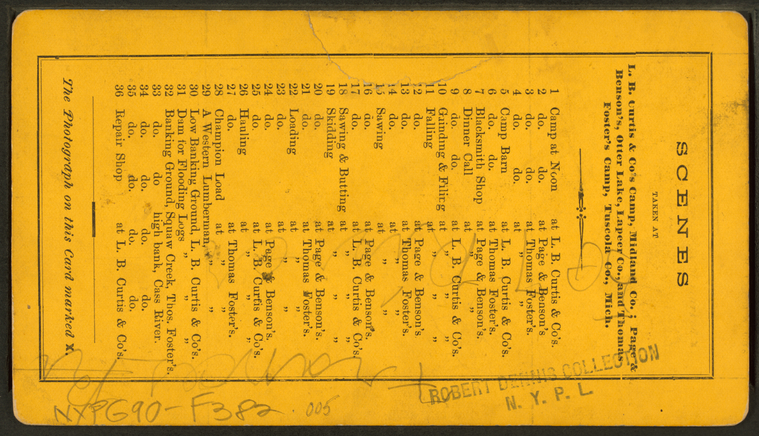 SCENES
TAKEN AT
L. B. Curtis & Co's Camp, Midland Co.; Page &
Benson's, Otter Lake, Lapeer Co., and Thomas
Foster's Camp, Tuscola Co., Mich.
1 Camp at Noon at L. B. Curtis & Co's.
2 do. do. at Page & Benson's.
3 do. do. at Thomas Foster's.
4 do. do. at „ „
5 Camp Barn at L. B. Curtis & Co's.
6 do. do. at Thomas Foster's.
7 Blacksmith Shop at Page & Benson's.
8 Dinner Call at „ „
9 do. do. at L. B. Curtis & Co's.
10 Grinding & Filing at „ „
11 Falling at „ „
12 do. at Page & Benson's.
13 do. at Thomas Foster's.
14 do. at „ „
15 Sawing at „ „
16 do. at Page & Benson's.
17 do. at L. B. Curtis & Co's
18 Sawing & Butting at „ „
19 Skidding at „ „
20 do. at Page & Benson's.
21 do. at Thomas Foster's.
22 Loading at „ „
23 do. at „ „
24 do. at Page & Benson's.
25 do. at L. B. Curtis & Co's.
26 Hauling at „ „
27 do. at Thomas Foster's.
28 Champion Load at „ „
29 A Western Lumberman, „ „
30 Low Banking Ground, L. B. Curtis & Co's.
31 Dam for Flooding Logs „ „
32 Banking Ground, Squaw Creek, Thos. Foster's.
33 do. do high bank, Cass River.
34 do. do. do. do.
35 do. do. do. do.
36 Repair Shop at L. B. Curtis & Co's.
The Photograph on this Card marked X.
ROBERT DENNIS COLLECTION
N. Y. P. L.
NYPG90-F382 .005